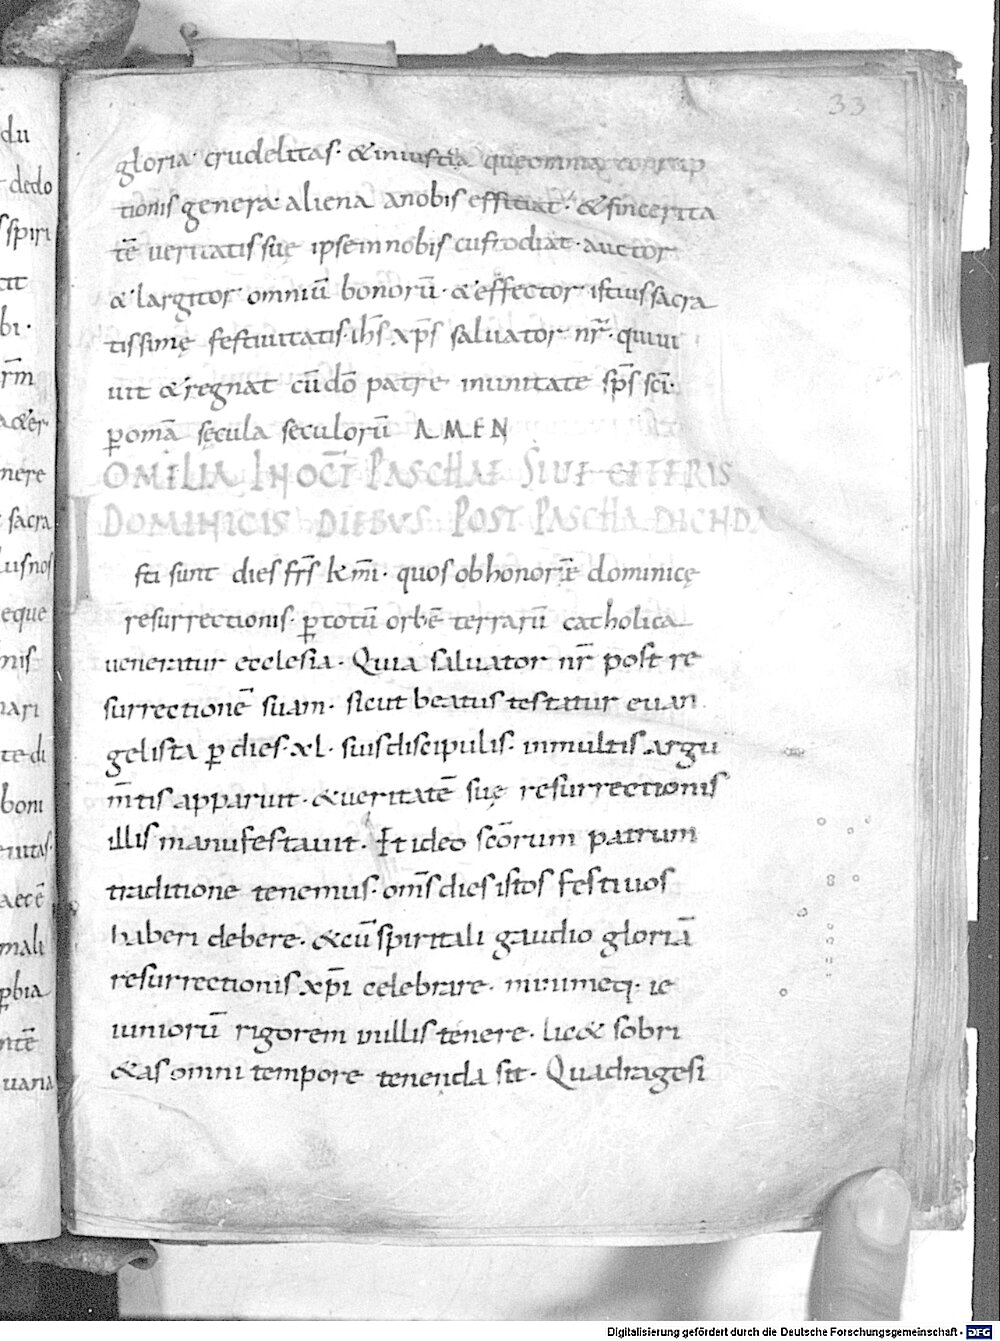 33
gloria crudelitas · & iniustia que omnia corrup
tionis genera aliena anobis efficiat · & sincerita
tē ueritatis suę ipse in nobis custodiat · auctor
& largitor omniū bonorū · & effector istius sacra
tissimę festiuitatis · ihs xp̄s saluator nr̄ · quiui
uit & regnat cū dō patre inunitate sp̄s sci ·
p omā sęcula seculorū AMEN
OMILIA IN OCT PASCHAE SIUE CETERIS
DOMINICIS DIEBUS POST PASCHA DICNDA
sti sunt dies frs̄ km̄i · quos ob honorē dominicę
resurrectionis · p totū orbē terrarū catholica
ueneratur ecclesia · Quia saluator nr̄ post re
surrectionē suam · sicut beatus testatur euan
gelista p dies · xl · suis discipulis · inmultis argu
m̄tis apparuit · & ueritatē suę resurrectionis
illis manifestauit · Et ideo scōrum patrum
traditione tenemus · om̄s dies istos festiuos
haberi debere · & cū spiritali gaudio gloriā
resurrectionis xp̄i celebrare · ie
iuniorū rigorem in illis tenere · lic& sobri
&as omni tempore tenenda sit · Quadragesi
du
dedo
spiri
bi ·
nere
sacra
lusnos
eque
nis
te di
boni
mali
pbia
uaria
Digitalisierung gefördert durch die Deutsche Forschungsgemeinschaft - DFG